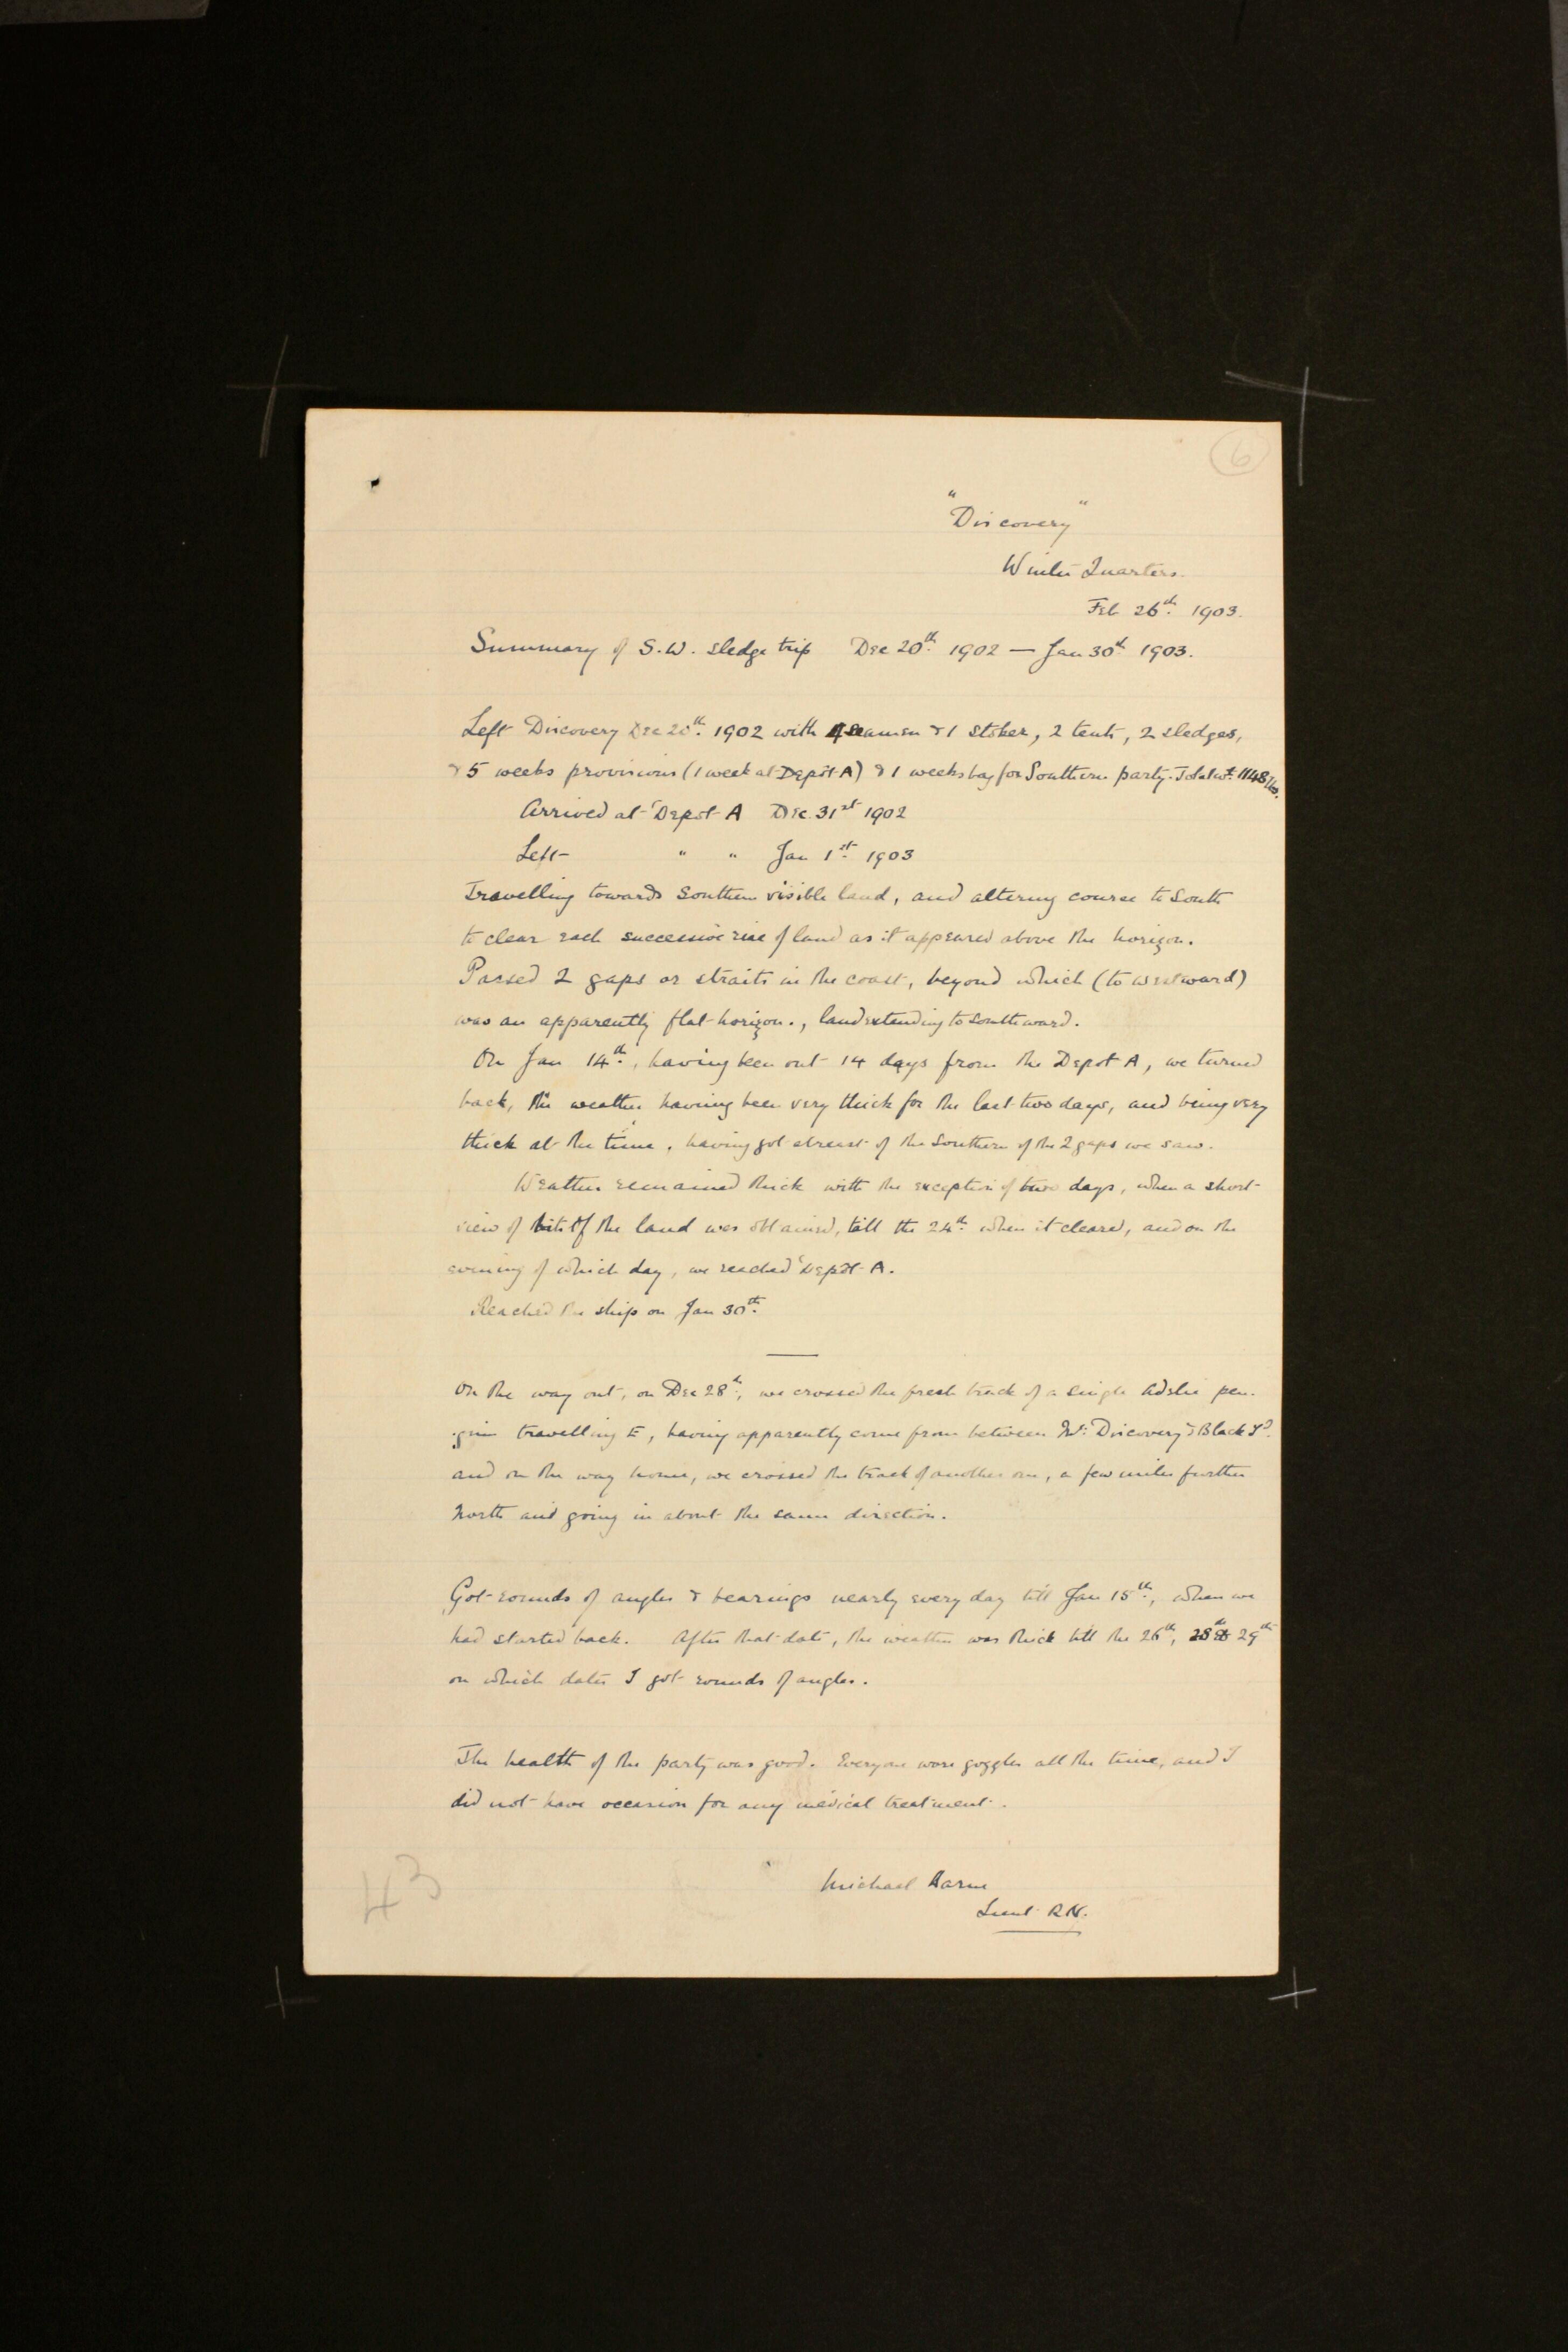 6
"Discovery"
Winter Quarters.
Feb 26th. 1903.
Summary of S.W. sledge trip Dec 20th. 1902 — Jan 30th 1903.
Left Discovery Dec 20th. 1902 with 4 seamen & 1 stoker, 2 tents, 2 sledges,
& 5 weeks provisions (1 week at Depôt A) & 1 weeks bag for Southern party. Total wt. 1148 lbs.
Arrived at Depôt A Dec. 31st 1902
Left " " Jan 1st. 1903
Travelling towards Southern visible land, and altering course to South
to clear each successive rise of land as it appeared above the horizon.
Passed 2 gaps or straits in the coast, beyond which (to westward)
was an apparently flat horizon., land extending to Southward.
On Jan 14th., having been out 14 days from the Depot A, we turned
back, the weather having been very thick for the last two days, and being very
thick at the time, having got abreast of the Southern of the 2 gaps we saw.
Weather remained thick with the exception of two days, when a short
view of bits of the land was obtained, till the 24th. when it cleared, and on the
evening of which day, we reached Depôt A.
Reached the ship on Jan 30th.
On the way out, on Dec 28th, we crossed the fresh track of a single Adelie pen-
guin travelling E, having apparently come from between Mt. Discovery & Black Id.
and on the way home, we crossed the track of another one, a few miles further
North and going in about the same direction.
Got rounds of angles & bearings nearly every day till Jan 15th., when we
had started back. After that date, the weather was thick till the 26th, 28th & 29th
on which dates I got rounds of angles.
The health of the party was good. Everyone wore goggles all the time, and I
did not have occasion for any medical treatment.
Michael Barne
Lieut R.N.
43